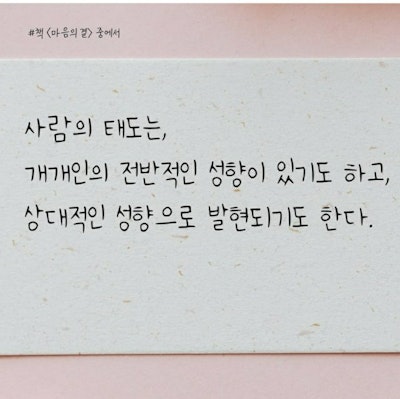 #책 <마음의 결> 중에서
사람의 태도는,
개개인의 전반적인 성향이 있기도 하고,
상대적인 성향으로 발현되기도 한다.